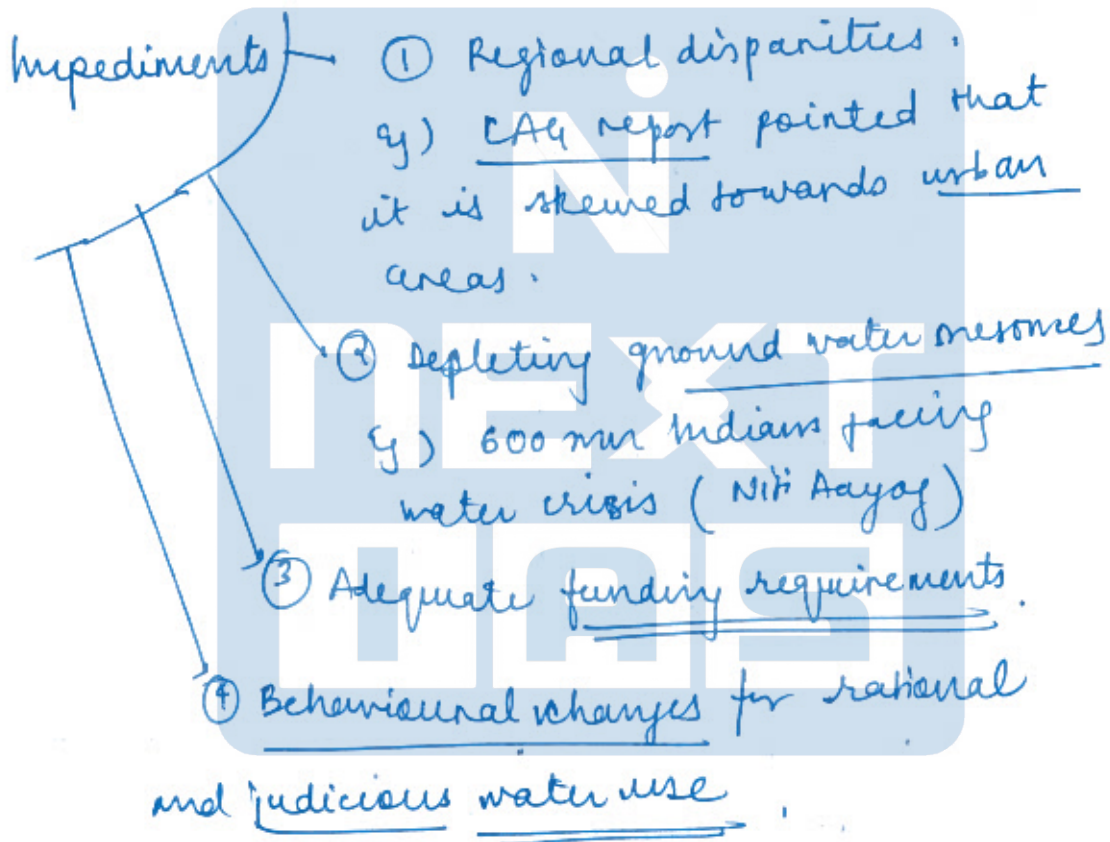 Impediments
① Regional disparities.
eg) CAG report pointed that
it is skewed towards urban
areas.
② Depleting ground water resources
eg) 600 mn Indians facing
water crisis (Niti Aayog)
③ Adequate funding requirements.
④ Behavioural changes for rational
and judicious water use.
NEXT
IAS